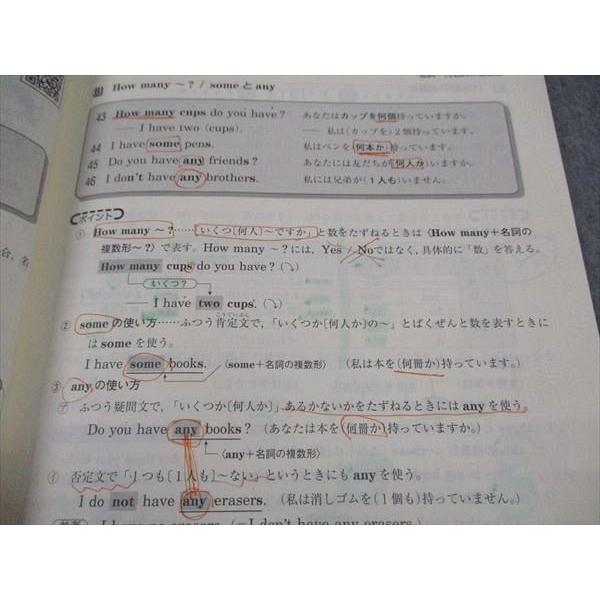 How many ～? / some と any
43 How many cups do you have? あなたはカップを何個持っていますか。
── I have two (cups). ── 私は(カップを)2個持っています。
44 I have some pens. 私はペンを(何本か)持っています。
45 Do you have any friends? あなたには友だちが(何人か)いますか。
46 I don't have any brothers. 私には兄弟が(1人も)いません。
ポイント
① How many ～?……「いくつ〔何人〕～ですか」と数をたずねるときは〈How many＋名詞の
複数形～?〉で表す。How many ～?には, Yes／Noではなく, 具体的に「数」を答える。
How many cups do you have? (↷)
いくつ?
── I have two cups. (↷)
② some の使い方……ふつう肯定文で,「いくつか〔何人か〕の～」とばくぜんと数を表すときに
こうていぶん
は some を使う。
I have some books. 〈some＋名詞の複数形〉 (私は本を(何冊か)持っています。)
③ any の使い方
㋐ ふつう疑問文で,「いくつか〔何人か〕」あるかないかをたずねるときには any を使う。
Do you have any books? (あなたは本を(何冊か)持っていますか。)
〈any＋名詞の複数形〉
㋑ 否定文で「1つも〔1人も〕～ない」というときにも any を使う。
I do not have any erasers. (私は消しゴムを(1個も)持っていません。)
参考 I have no erasers. (＝I don't have any erasers.)